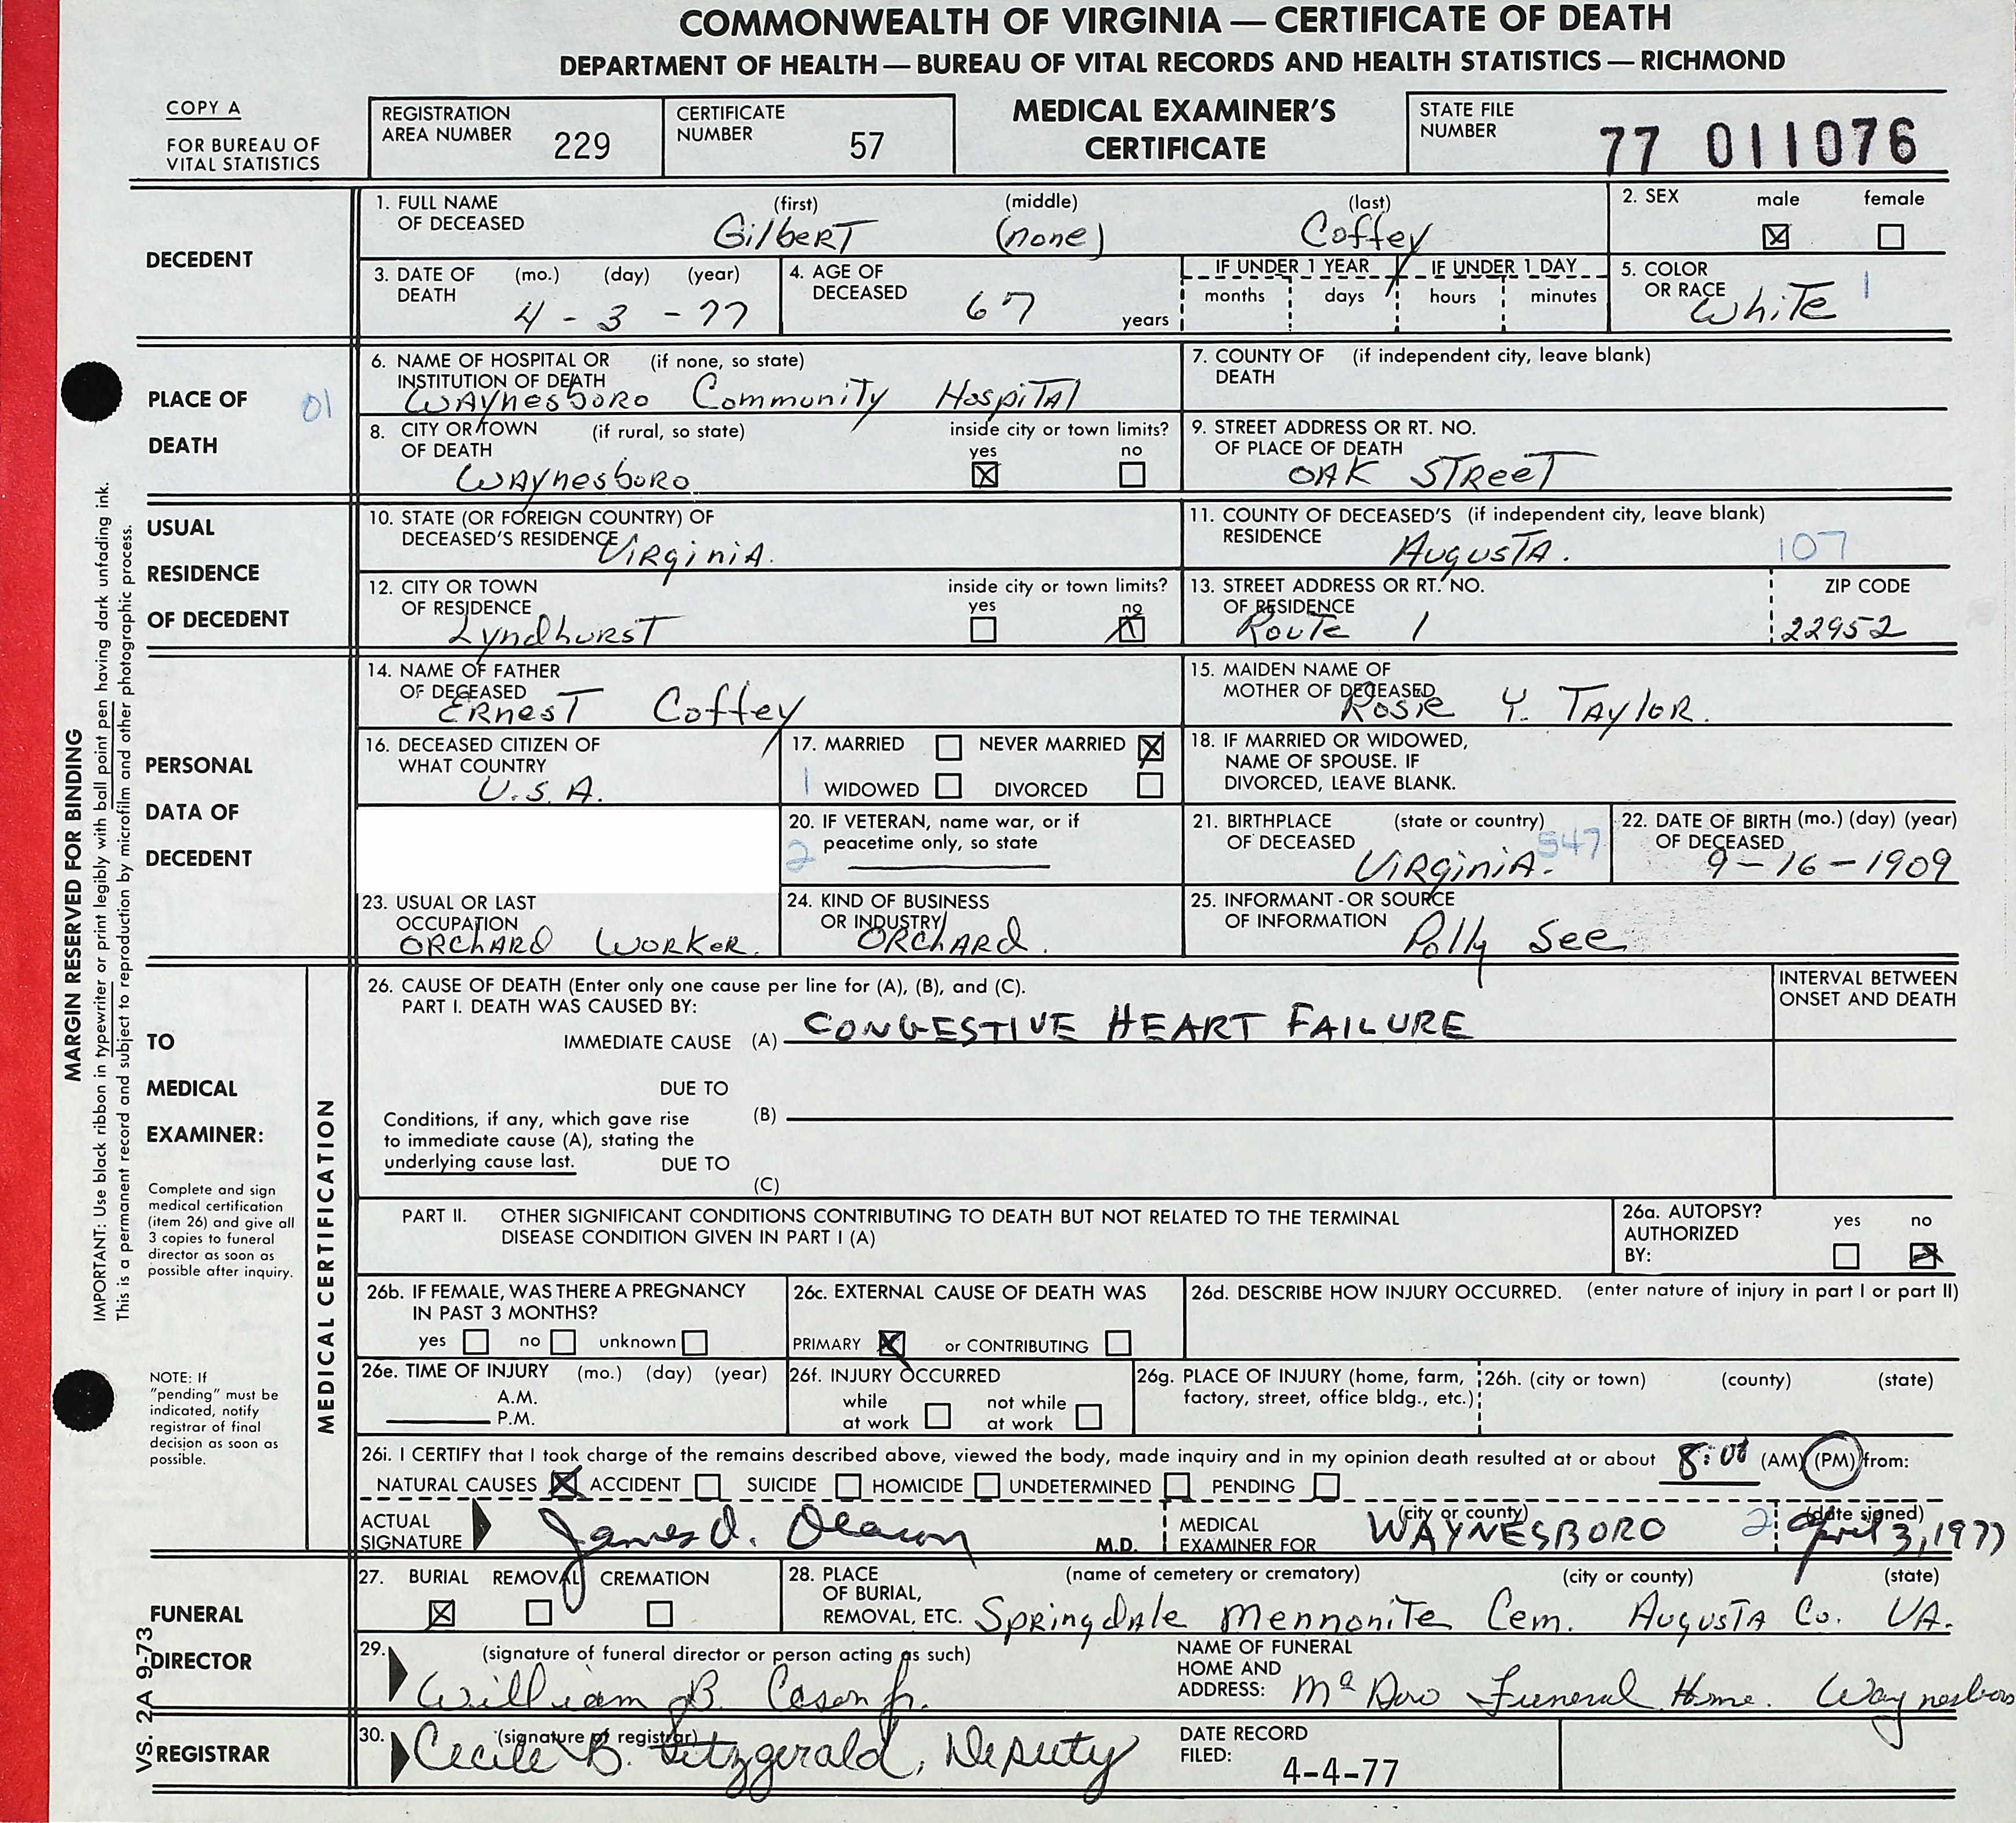 COMMONWEALTH OF VIRGINIA — CERTIFICATE OF DEATH
DEPARTMENT OF HEALTH — BUREAU OF VITAL RECORDS AND HEALTH STATISTICS — RICHMOND
COPY A
FOR BUREAU OF
VITAL STATISTICS
REGISTRATION
AREA NUMBER 229
CERTIFICATE
NUMBER 57
MEDICAL EXAMINER'S
CERTIFICATE
STATE FILE
NUMBER 77 011076
DECEDENT
1. FULL NAME (first) (middle) (last)
OF DECEASED Gilbert (none) Coffey
2. SEX male female
☒ ☐
3. DATE OF (mo.) (day) (year)
DEATH 4 - 3 - 77
4. AGE OF
DECEASED 67 years
IF UNDER 1 YEAR IF UNDER 1 DAY
months days hours minutes
5. COLOR
OR RACE White 1
PLACE OF 01
DEATH
6. NAME OF HOSPITAL OR (if none, so state)
INSTITUTION OF DEATH
Waynesboro Community Hospital
7. COUNTY OF (if independent city, leave blank)
DEATH
8. CITY OR TOWN (if rural, so state) inside city or town limits?
OF DEATH yes no
Waynesboro ☒ ☐
9. STREET ADDRESS OR RT. NO.
OF PLACE OF DEATH
OAK STREET
USUAL
RESIDENCE
OF DECEDENT
10. STATE (OR FOREIGN COUNTRY) OF
DECEASED'S RESIDENCE Virginia.
11. COUNTY OF DECEASED'S (if independent city, leave blank)
RESIDENCE Augusta. 107
12. CITY OR TOWN inside city or town limits?
OF RESIDENCE yes no
Lyndhurst ☐ ☒
13. STREET ADDRESS OR RT. NO. ZIP CODE
OF RESIDENCE
Route 1 22952
PERSONAL
DATA OF
DECEDENT
14. NAME OF FATHER
OF DECEASED
Ernest Coffey
15. MAIDEN NAME OF
MOTHER OF DECEASED
Rosie Y. Taylor.
16. DECEASED CITIZEN OF
WHAT COUNTRY
U.S.A.
17. MARRIED ☐ NEVER MARRIED ☒
1 WIDOWED ☐ DIVORCED ☐
18. IF MARRIED OR WIDOWED,
NAME OF SPOUSE. IF
DIVORCED, LEAVE BLANK.
20. IF VETERAN, name war, or if
2 peacetime only, so state
21. BIRTHPLACE (state or country)
OF DECEASED 547
Virginia.
22. DATE OF BIRTH (mo.) (day) (year)
OF DECEASED
9-16-1909
23. USUAL OR LAST
OCCUPATION
ORCHARD WORKER.
24. KIND OF BUSINESS
OR INDUSTRY
ORCHARD.
25. INFORMANT - OR SOURCE
OF INFORMATION Polly See
TO
MEDICAL
EXAMINER:
Complete and sign
medical certification
(item 26) and give all
3 copies to funeral
director as soon as
possible after inquiry.
NOTE: If
"pending" must be
indicated, notify
registrar of final
decision as soon as
possible.
MEDICAL CERTIFICATION
26. CAUSE OF DEATH (Enter only one cause per line for (A), (B), and (C).
PART I. DEATH WAS CAUSED BY:
IMMEDIATE CAUSE (A) CONGESTIVE HEART FAILURE
INTERVAL BETWEEN
ONSET AND DEATH
DUE TO
Conditions, if any, which gave rise (B)
to immediate cause (A), stating the
underlying cause last. DUE TO
(C)
PART II. OTHER SIGNIFICANT CONDITIONS CONTRIBUTING TO DEATH BUT NOT RELATED TO THE TERMINAL
DISEASE CONDITION GIVEN IN PART I (A)
26a. AUTOPSY? yes no
AUTHORIZED
BY: ☐ ☒
26b. IF FEMALE, WAS THERE A PREGNANCY
IN PAST 3 MONTHS?
yes ☐ no ☐ unknown ☐
26c. EXTERNAL CAUSE OF DEATH WAS
PRIMARY ☒ or CONTRIBUTING ☐
26d. DESCRIBE HOW INJURY OCCURRED. (enter nature of injury in part I or part II)
26e. TIME OF INJURY (mo.) (day) (year)
A.M.
P.M.
26f. INJURY OCCURRED
while not while
at work ☐ at work ☐
26g. PLACE OF INJURY (home, farm,
factory, street, office bldg., etc.)
26h. (city or town) (county) (state)
26i. I CERTIFY that I took charge of the remains described above, viewed the body, made inquiry and in my opinion death resulted at or about 8:00 (AM) (PM) from:
NATURAL CAUSES ☒ ACCIDENT ☐ SUICIDE ☐ HOMICIDE ☐ UNDETERMINED ☐ PENDING ☐
ACTUAL
SIGNATURE James D. M.D.
MEDICAL (city or county)
EXAMINER FOR WAYNESBORO 2
(date signed)
April 3, 1977
FUNERAL
DIRECTOR
27. BURIAL REMOVAL CREMATION
☒ ☐ ☐
28. PLACE (name of cemetery or crematory) (city or county) (state)
OF BURIAL,
REMOVAL, ETC. Springdale Mennonite Cem. Augusta Co. VA.
29. (signature of funeral director or person acting as such)
William B. Cason Jr.
NAME OF FUNERAL
HOME AND
ADDRESS: McDow Funeral Home. Waynesboro
REGISTRAR
30. (signature of registrar)
Cecile B. Fitzgerald, Deputy
DATE RECORD
FILED: 4-4-77
MARGIN RESERVED FOR BINDING
IMPORTANT: Use black ribbon in typewriter or print legibly with ball point pen having dark unfading ink.
This is a permanent record and subject to reproduction by microfilm and other photographic process.
VS. 2A 9-73